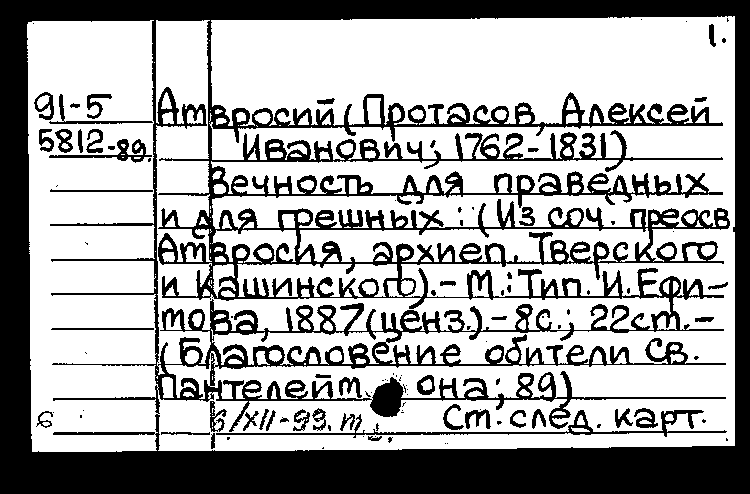 1.
91-5
5812-89
Амвросий (Протасов, Алексей
Иванович; 1762-1831)
Вечность для праведных
и для грешных : (Из соч. преосв.
Амвросия, архиеп. Тверского
и Кашинского). - М.: Тип. И. Ефи-
мова, 1887 (ценз.). - 8с.; 22см. -
(Благословение обители Св.
Пантелейм она; 89)
6 6/XII-99. См. след. карт.